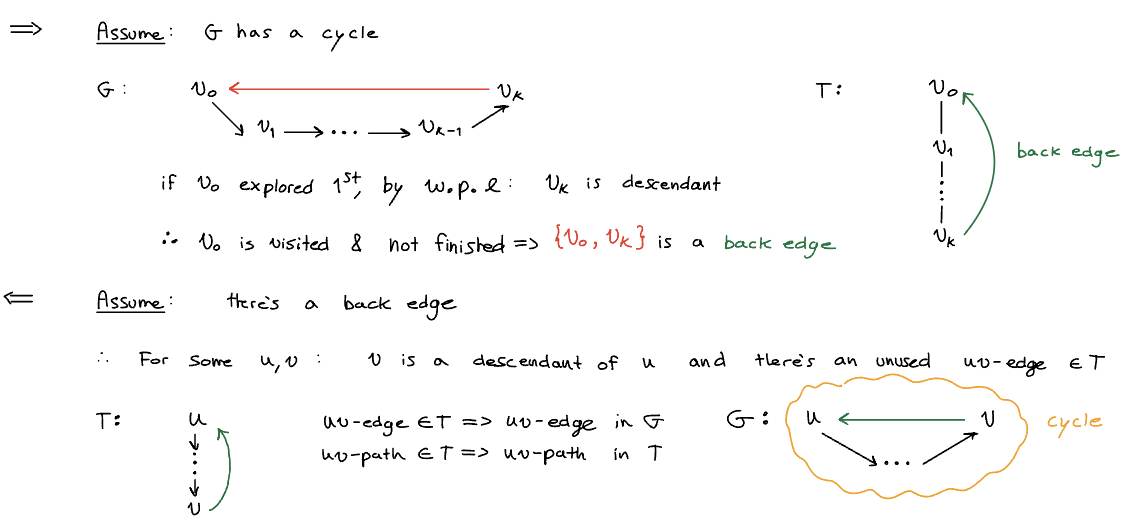 ⇒ Assume: G has a cycle
G: v₀ vₖ T: v₀
v₁ ... vₖ₋₁ v₁ back edge
if v₀ explored 1ˢᵗ, by w.p.l: vₖ is descendant
∴ v₀ is visited & not finished => {v₀, vₖ} is a back edge vₖ
⇐ Assume: there's a back edge
∴ For some u,v : v is a descendant of u and there's an unused uv-edge ∈ T
T: u uv-edge ∈ T => uv-edge in G G: u v cycle
uv-path ∈ T => uv-path in T ...
v